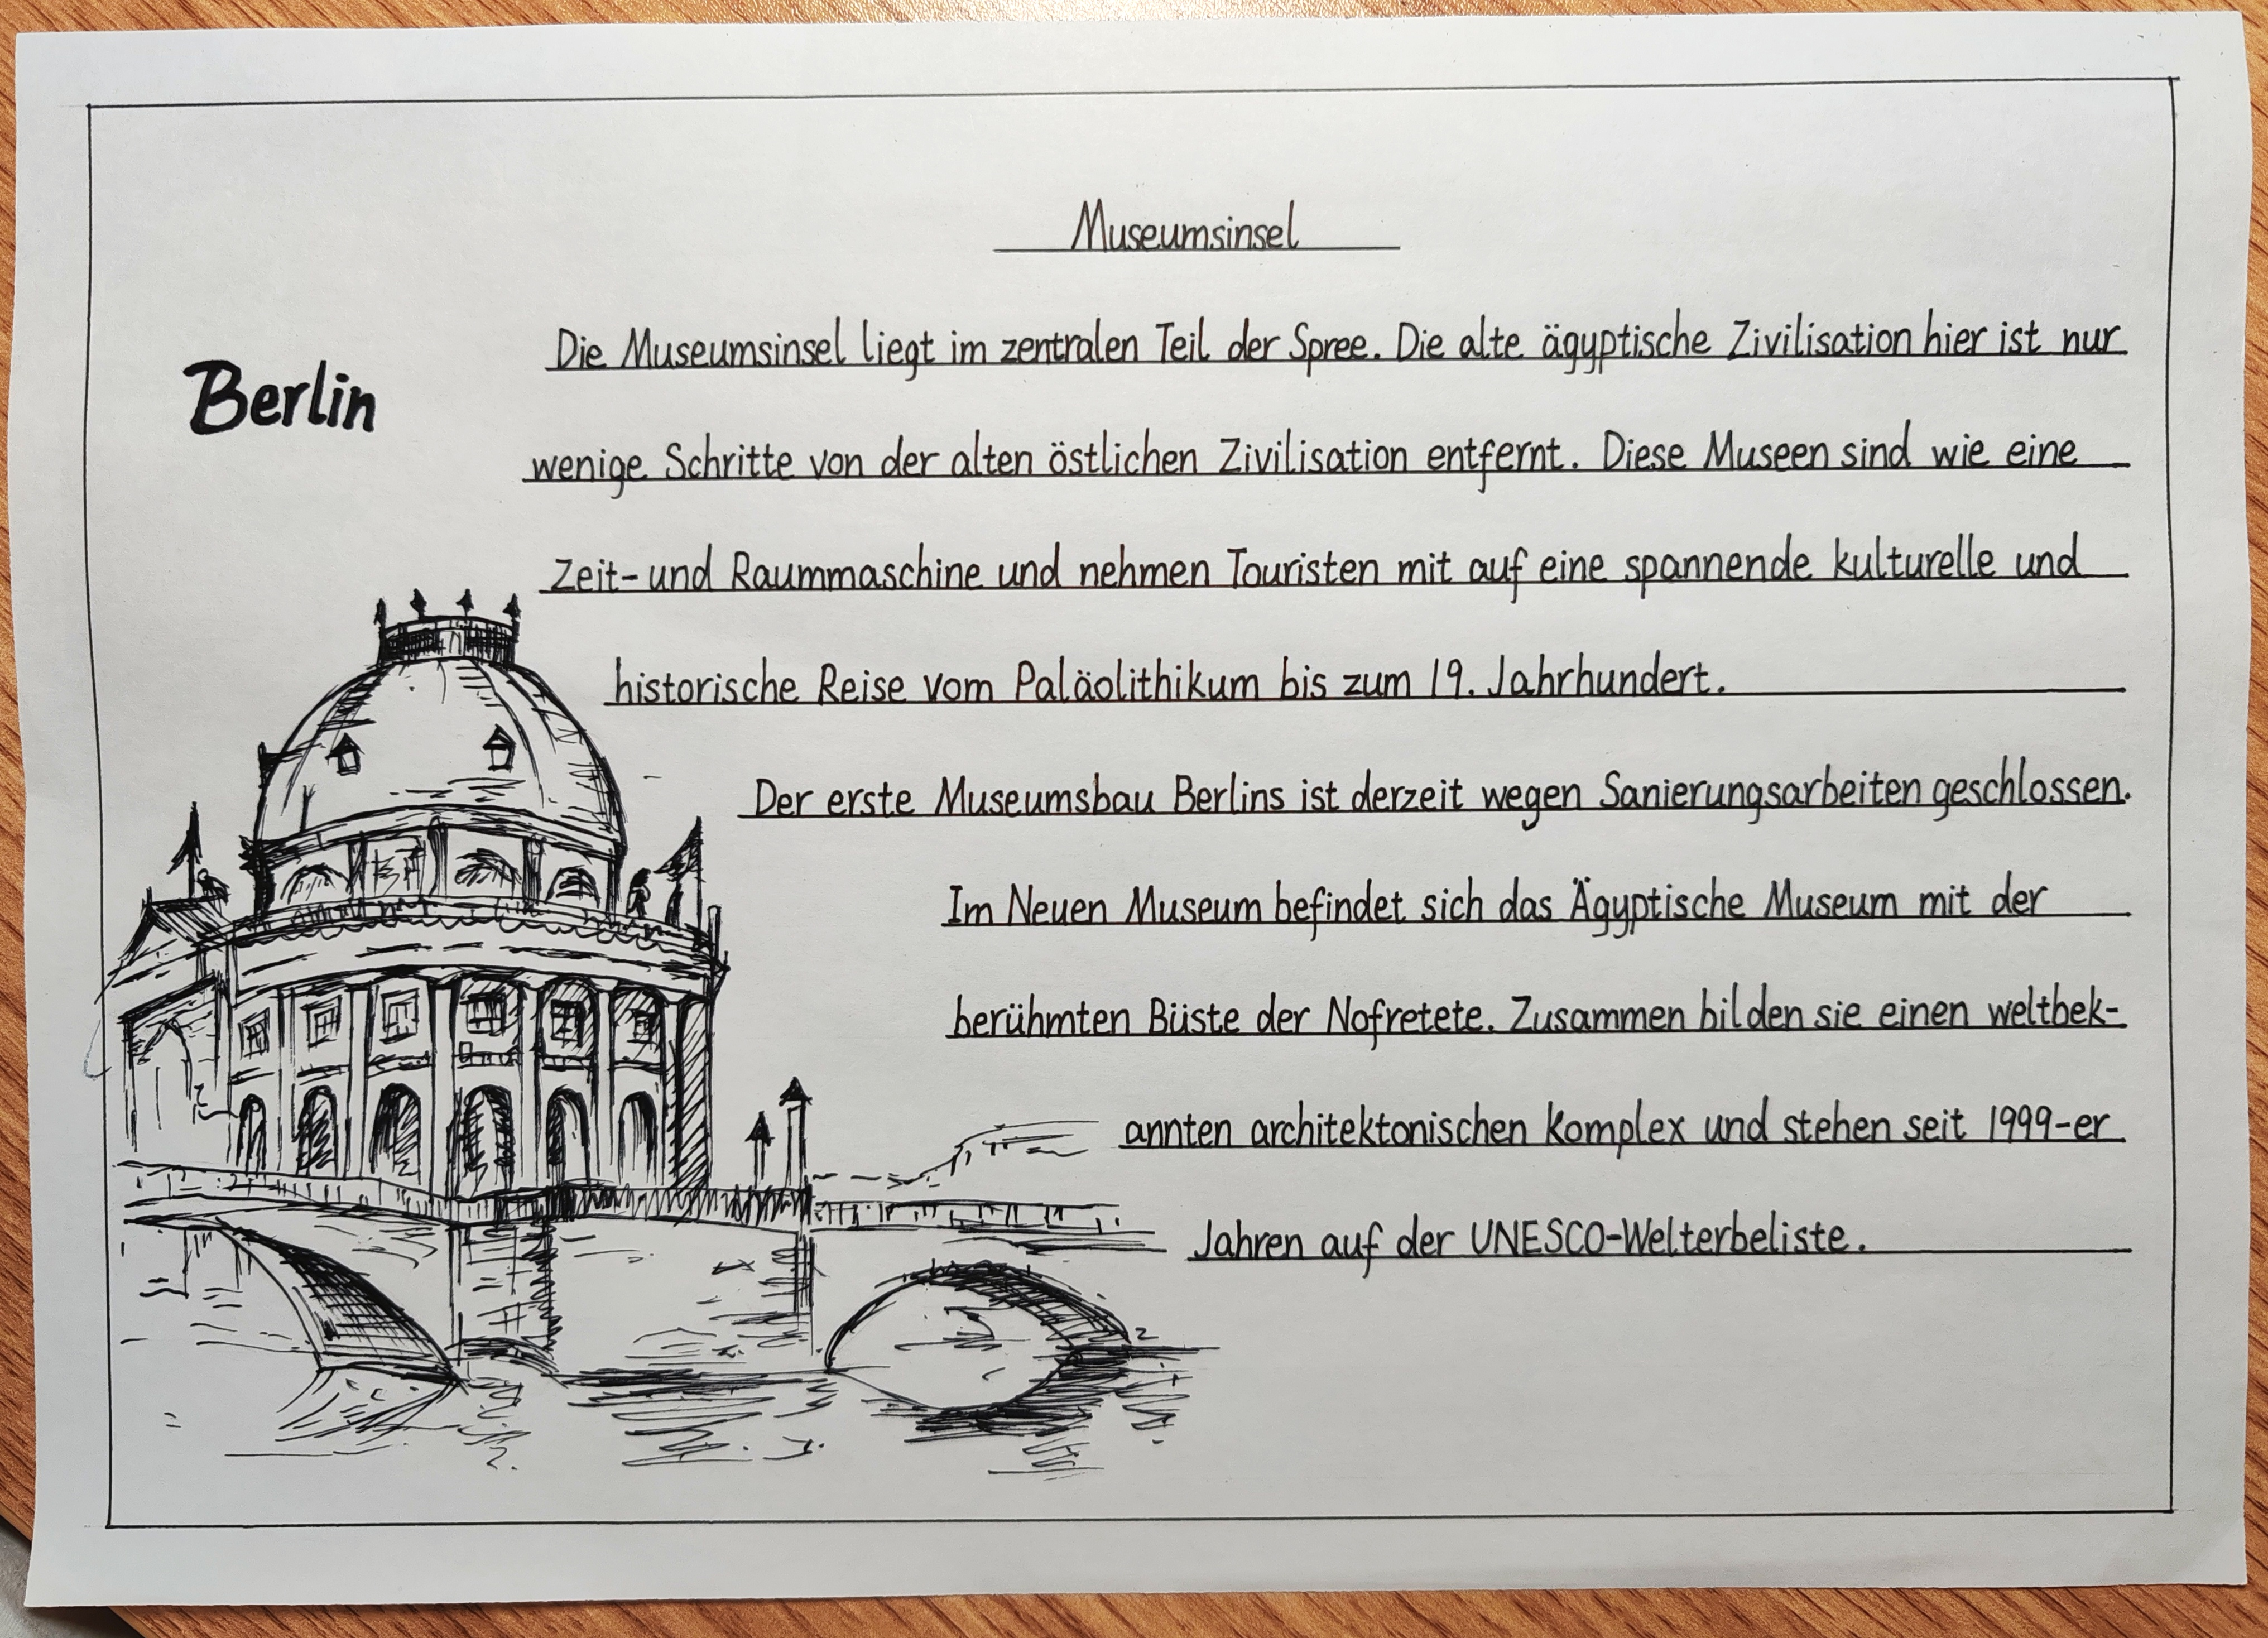 Museumsinsel
Berlin
Die Museumsinsel liegt im zentralen Teil der Spree. Die alte ägyptische Zivilisation hier ist nur
wenige Schritte von der alten östlichen Zivilisation entfernt. Diese Museen sind wie eine
Zeit- und Raummaschine und nehmen Touristen mit auf eine spannende kulturelle und
historische Reise vom Paläolithikum bis zum 19. Jahrhundert.
Der erste Museumsbau Berlins ist derzeit wegen Sanierungsarbeiten geschlossen.
Im Neuen Museum befindet sich das Ägyptische Museum mit der
berühmten Büste der Nofretete. Zusammen bilden sie einen weltbek-
annten architektonischen Komplex und stehen seit 1999-er
Jahren auf der UNESCO-Welterbeliste.